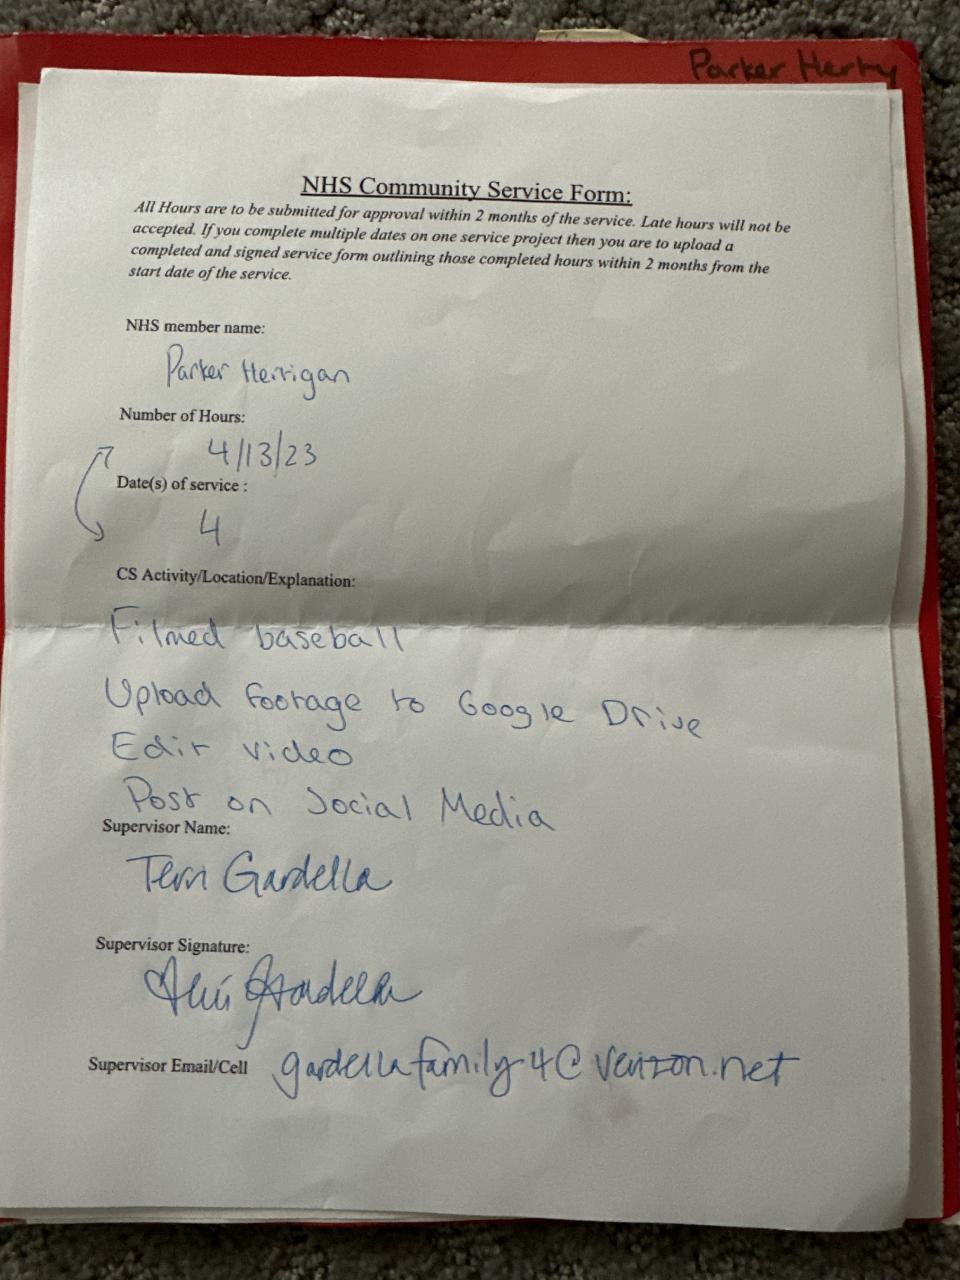 Parker Herty
NHS Community Service Form:
All Hours are to be submitted for approval within 2 months of the service. Late hours will not be
accepted. If you complete multiple dates on one service project then you are to upload a
completed and signed service form outlining those completed hours within 2 months from the
start date of the service.
NHS member name:
Parker Herrigan
Number of Hours:
4/13/23
Date(s) of service :
4
CS Activity/Location/Explanation:
Filmed baseball
Upload footage to Google Drive
Edit video
Post on Social Media
Supervisor Name:
Terri Gardella
Supervisor Signature:
Terri Gardella
Supervisor Email/Cell
gardellafamily4@verizon.net